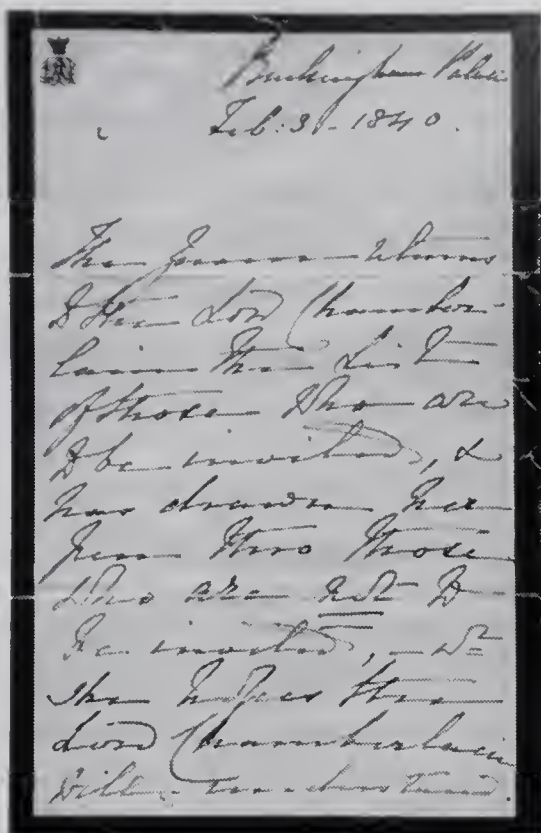 Buckingham Palace
Feb: 3 - 1840.
The Queen returns
to the Lord Chamber-
lain the List
of those who are
to be invited, &
has drawn her
pen thro' those
who are not to
be invited, -
she hopes the
Lord Chamberlain
will understand.